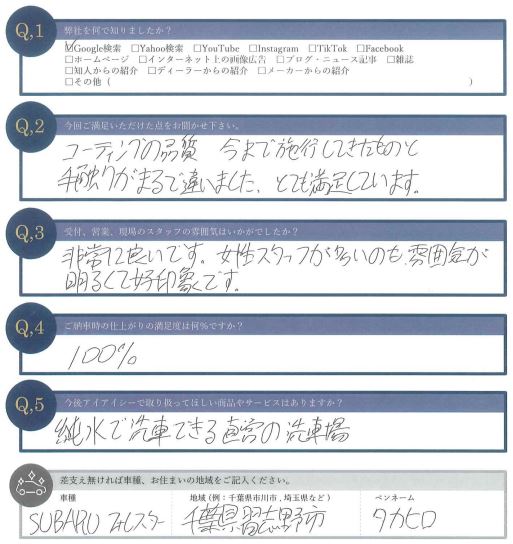 Q,1 弊社を何で知りましたか？
☑Google検索 □Yahoo検索 □YouTube □Instagram □TikTok □Facebook
□ホームページ □インターネット上の画像広告 □ブログ・ニュース記事 □雑誌
□知人からの紹介 □ディーラーからの紹介 □メーカーからの紹介
□その他（ ）
Q,2 今回ご満足いただけた点をお聞かせ下さい。
コーティングの品質 今まで施行してきたものと
手触りがまるで違いました、とても満足しています。
Q,3 受付、営業、現場のスタッフの雰囲気はいかがでしたか？
非常に良いです。女性スタッフが多いのも、雰囲気が
明るくて好印象です。
Q,4 ご納車時の仕上がりの満足度は何%ですか？
100%
Q,5 今後アイアイシーで取り扱ってほしい商品やサービスはありますか？
純水で洗車できる直営の洗車場
差支え無ければ車種、お住まいの地域をご記入ください。
車種 地域（例：千葉県市川市、埼玉県など） ペンネーム
SUBARU フォレスター 千葉県習志野市 タカヒロ